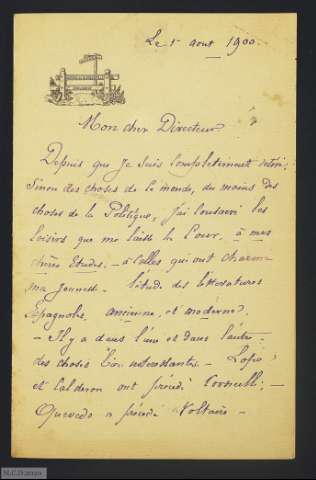 Le 1er aout 1900.
Mon cher Directeur
Depuis que je suis complètement retiré,
Sinon des choses de le monde, du moins des
choses de la Politique, j'ai consacré les
loisirs que me laisse la Cour, à mes
chères Etudes, - à celles qui ont charmé
ma jeunesse - l'étude des littératures
Espagnole, ancienne, et moderne.
- Il y a dans l'une et dans l'autre
des choses bien intéressantes - Lope
et Calderon ont précédé Corneille; -
Quevedo a précédé Voltaire -